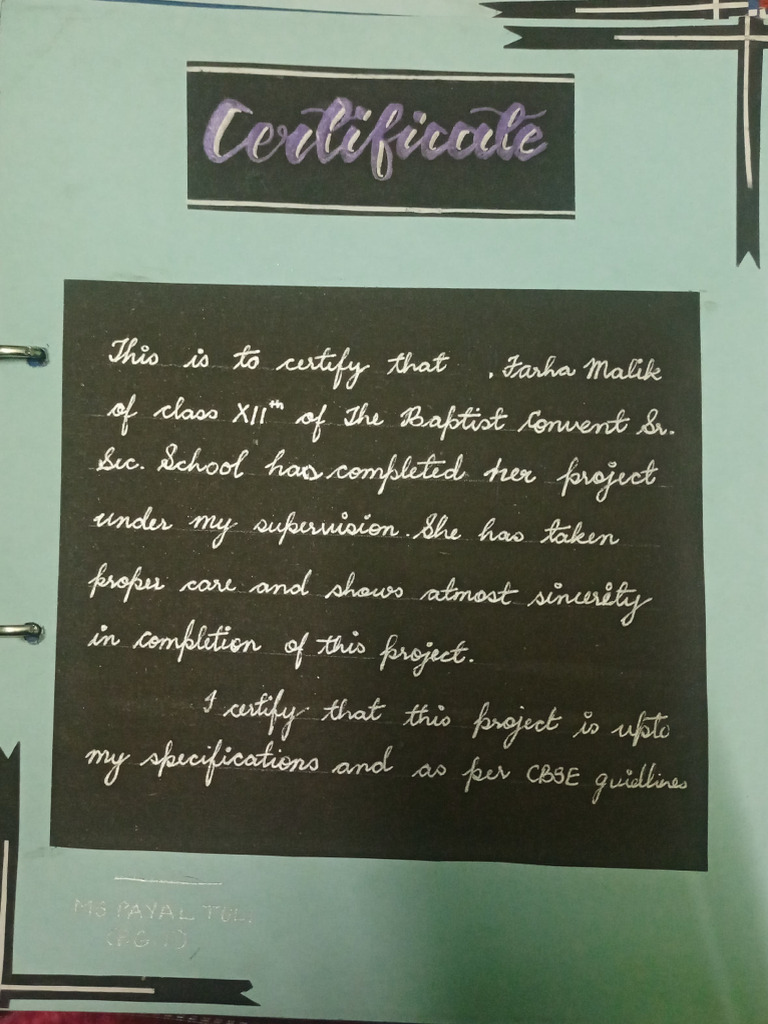 Certificate
This is to certify that . Farha Malik
of class XIIth of The Baptist Convent Sr.
Sec. School has completed her project
under my supervision. She has taken
proper care and shows atmost sincerity
in completion of this project.
I certify that this project is upto
my specifications and as per CBSE guidlines
MS PAYAL